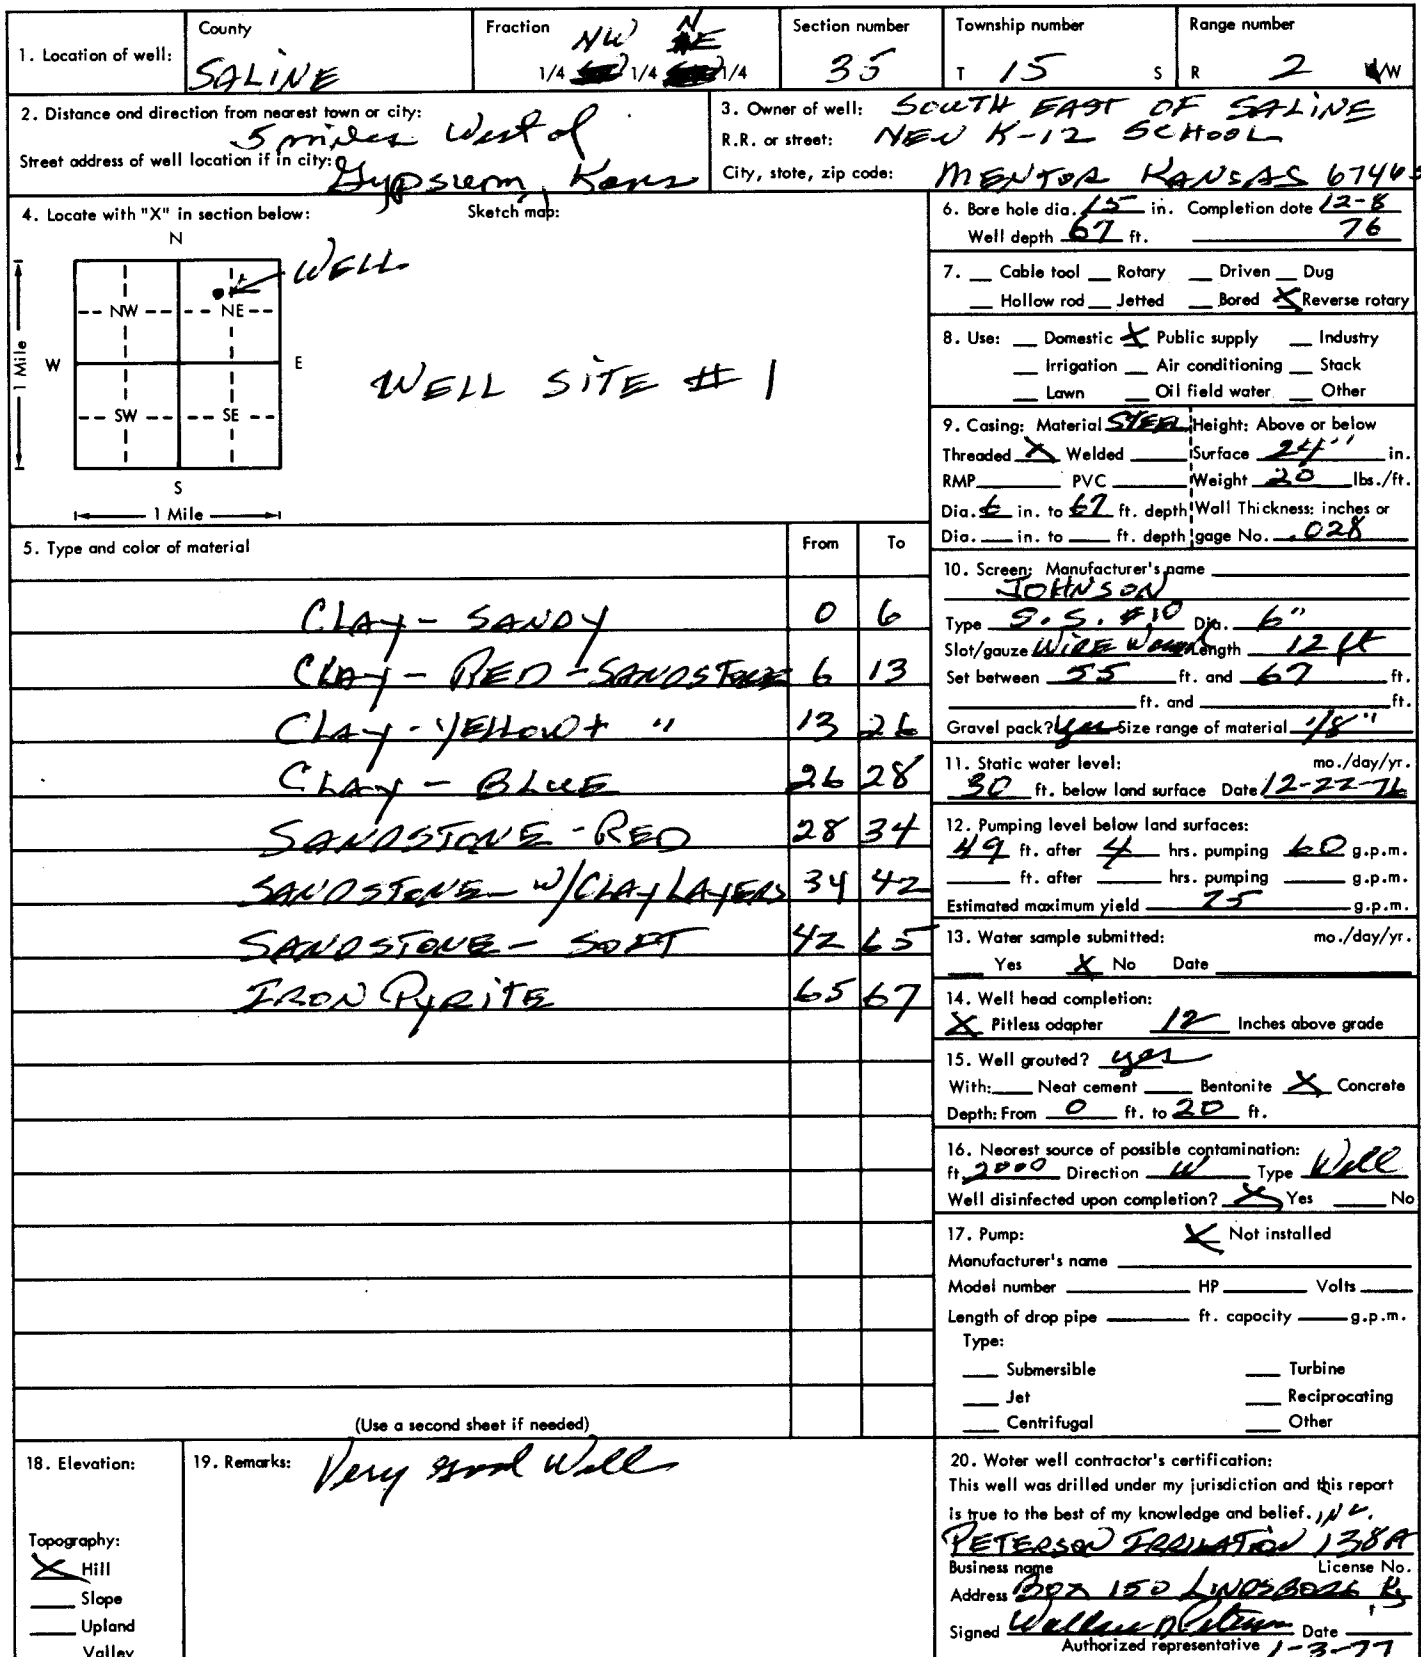 1. Location of well: County SALINE Fraction NW N NE 1/4 1/4 1/4 Section number 35 Township number T 15 S Range number R 2 W
2. Distance and direction from nearest town or city: 5 miles West of
Street address of well location if in city: Gypsum, Kans
3. Owner of well: SOUTH EAST OF SALINE
R.R. or street: NEW K-12 SCHOOL
City, state, zip code: MENTOR KANSAS
4. Locate with "X" in section below: Sketch map:
N
WELL
NW NE
1 Mile W E
WELL SITE # 1
SW SE
S
1 Mile
5. Type and color of material From To
CLAY - SANDY 0 6
CLAY - RED - SANDSTONE 6 13
CLAY - YELLOW + " 13 26
CLAY - BLUE 26 28
SANDSTONE - RED 28 34
SANDSTONE - W/CLAY LAYERS 34 42
SANDSTONE - SOFT 42 65
IRON PYRITE 65 67
(Use a second sheet if needed)
6. Bore hole dia. 15 in. Completion date 12-8
Well depth 67 ft. 76
7. Cable tool Rotary Driven Dug
Hollow rod Jetted Bored X Reverse rotary
8. Use: Domestic X Public supply Industry
Irrigation Air conditioning Stock
Lawn Oil field water Other
9. Casing: Material STEEL Height: Above or below
Threaded X Welded Surface 24" in.
RMP PVC Weight 20 lbs./ft.
Dia. 6 in. to 67 ft. depth Wall Thickness: inches or
Dia. in. to ft. depth gage No. .028
10. Screen: Manufacturer's name
JOHNSON
Type S.S. #10 Dia. 6"
Slot/gauze WIRE Wound Length 12 ft
Set between 55 ft. and 67 ft.
ft. and ft.
Gravel pack? Yes Size range of material 1/8"
11. Static water level: mo./day/yr.
30 ft. below land surface Date 12-22-76
12. Pumping level below land surfaces:
49 ft. after 4 hrs. pumping 60 g.p.m.
ft. after hrs. pumping g.p.m.
Estimated maximum yield 75 g.p.m.
13. Water sample submitted: mo./day/yr.
Yes X No Date
14. Well head completion:
X Pitless adapter 12 Inches above grade
15. Well grouted? yes
With: Neat cement Bentonite X Concrete
Depth: From 0 ft. to 20 ft.
16. Nearest source of possible contamination:
ft. 2000 Direction W Type Well
Well disinfected upon completion? X Yes No
17. Pump: X Not installed
Manufacturer's name
Model number HP Volts
Length of drop pipe ft. capacity g.p.m.
Type:
Submersible Turbine
Jet Reciprocating
Centrifugal Other
18. Elevation:
Topography:
X Hill
Slope
Upland
Valley
19. Remarks: Very good Well
20. Water well contractor's certification:
This well was drilled under my jurisdiction and this report
is true to the best of my knowledge and belief. INC.
PETERSON IRRIGATION 138A
Business name License No.
Address BOX 150 LINDSBORG Ks
Signed Date
Authorized representative 1-3-77